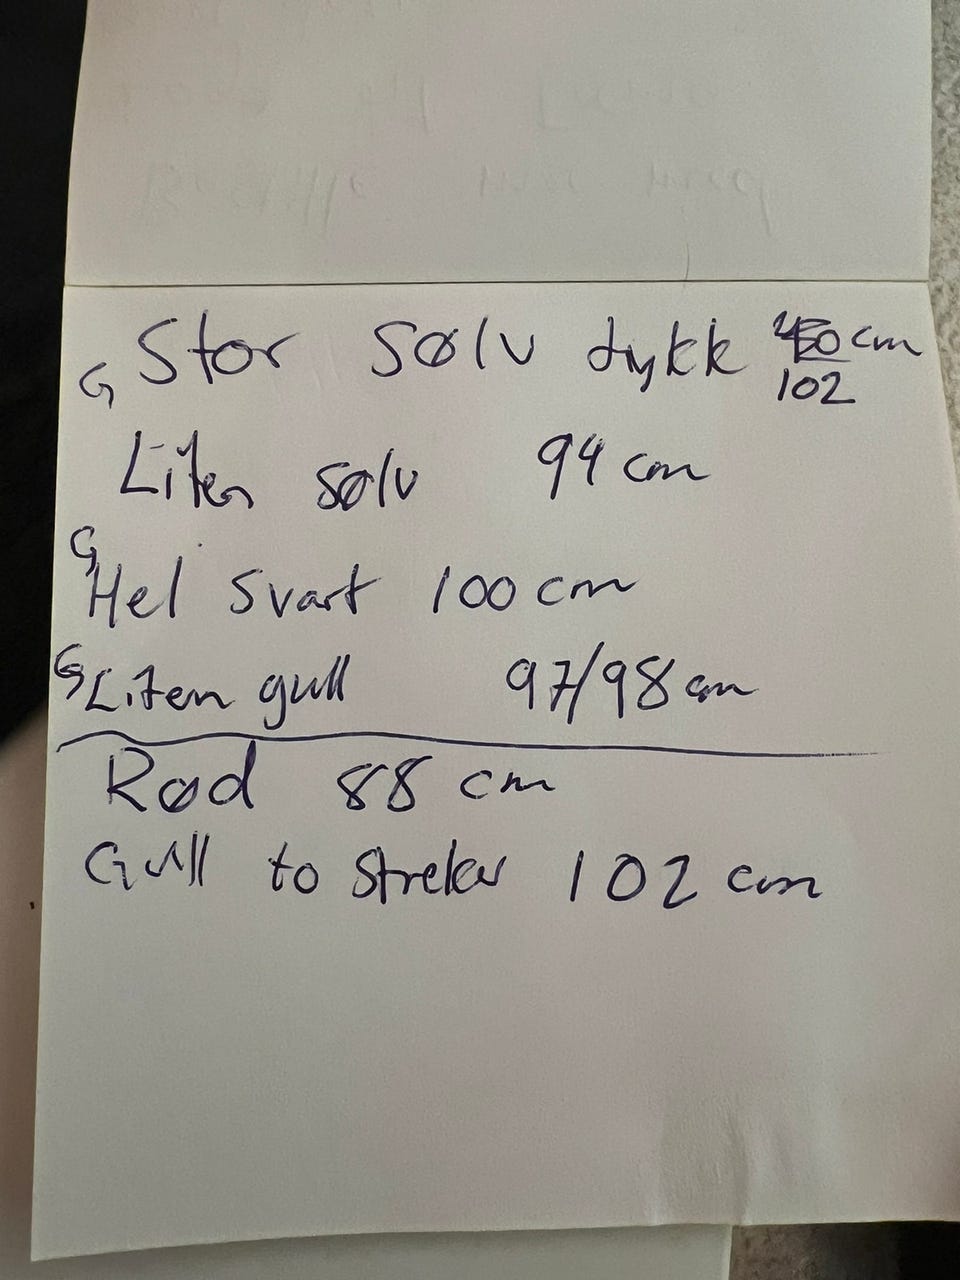 G Stor Sølv tykk cm
102
Liten sølv 94 cm
G
Hel Svart 100 cm
G Liten gull 97/98 cm
Rød 88 cm
Gull to streker 102 cm